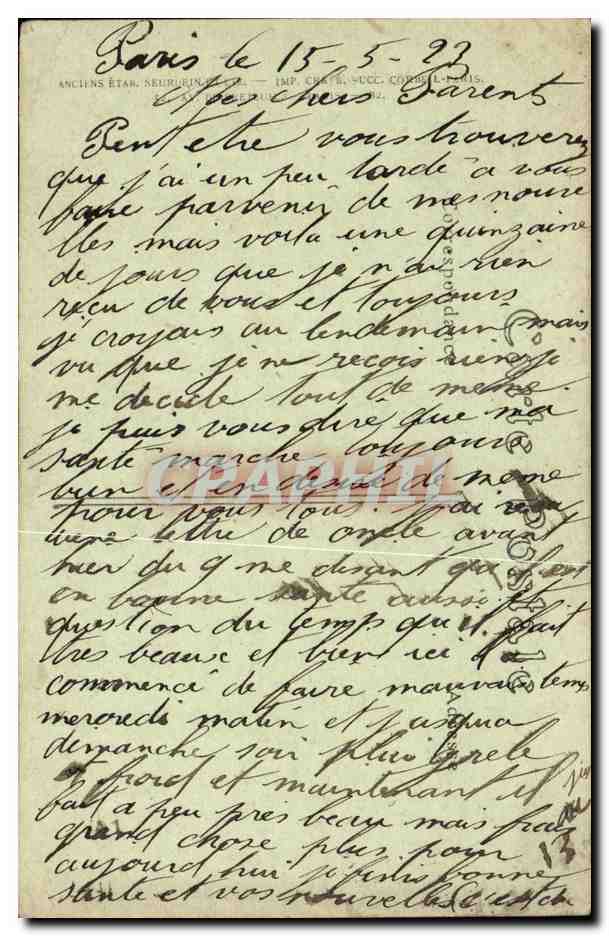 Paris le 15-5-23
ANCIENS ÉTAB. NEURDEIN ET CIE. — IMP. CRÉTÉ. SUCC. CORBEIL-PARIS.
chers Parents
Peut etre vous trouverez
que j'ai un peu tardé a vous
faire parvenir de mes nouve
lles mais voila une quinzaine
de jours que je n'ai rien
recu de vous et toujours
je croyais au lendemain mais
vu que je ne recois rien je
me decide tout de meme.
je puis vous dire que ma
santé marche toujours
bien et en desire de meme
pour vous tous. j'ai recu
une lettre de oncle avant
hier du 9 me disant que
en bonne santé aussi et
question du temps qu'il fait
tres beau et bien ici il
commencé de faire mauvais temps
mercredi matin et jusqua
dimanche soir pluie grele
et froid et maintenant il
fait a peu pres beau mais frais
grand chose plus pour
aujourd hui je finis bonne
santé et vos nouvelles c'est du
13 au
Carte Postale
Correspondance
Adresse
CPAPHIL